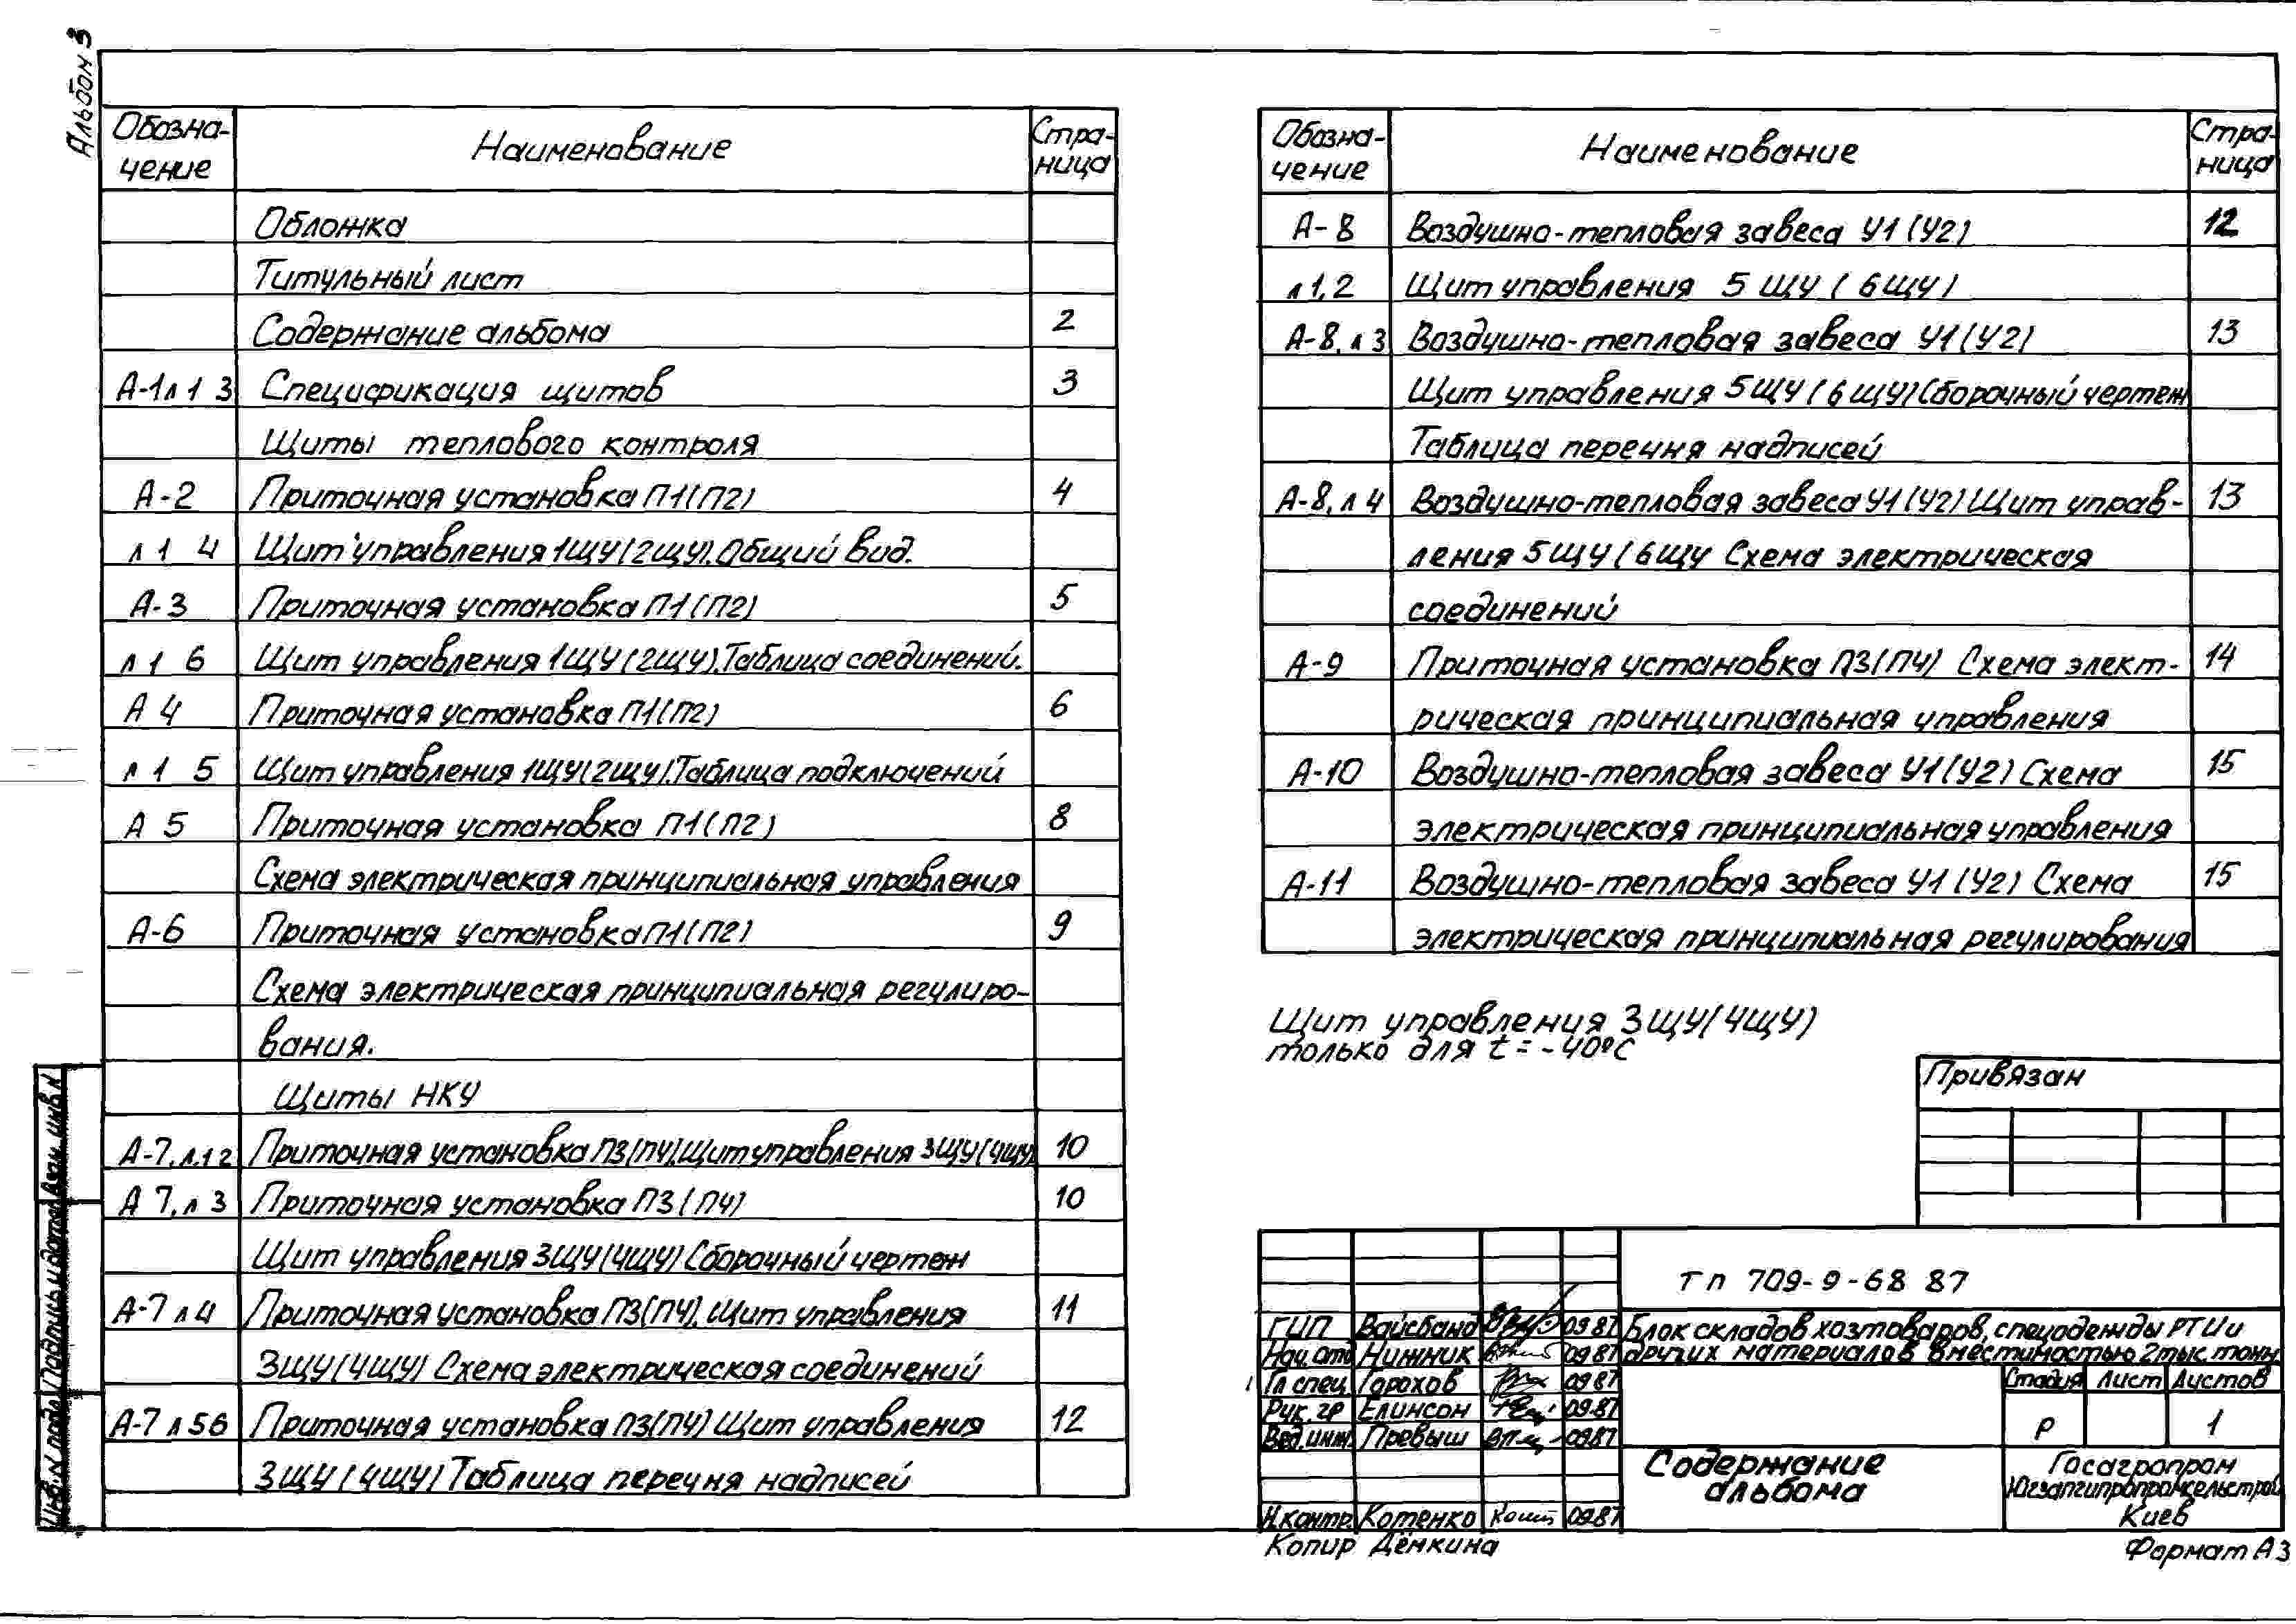 Альбом 3
Обозна-
чение
Наименование
Стра-
ница
Обложка
Титульный лист
Содержание альбома 2
А-1л 1 3 Спецификация щитов 3
Щиты теплового контроля
А-2 Приточная установка П1(П2) 4
л 1 4 Щит управления 1ЩУ(2ЩУ). Общий вид.
А-3 Приточная установка П1(П2) 5
л 1 6 Щит управления 1ЩУ(2ЩУ). Таблица соединений.
А 4 Приточная установка П1(П2) 6
л 1 5 Щит управления 1ЩУ(2ЩУ). Таблица подключений
А 5 Приточная установка П1(П2) 8
Схема электрическая принципиальная управления
А-6 Приточная установка П1(П2) 9
Схема электрическая принципиальная регулиро-
вания.
Щиты НКУ
А-7, л.1 2 Приточная установка П3(П4). Щит управления 3ЩУ(4ЩУ) 10
А 7, л 3 Приточная установка П3(П4) 10
Щит управления 3ЩУ(4ЩУ) Сборочный чертеж
А-7 л 4 Приточная установка П3(П4). Щит управления 11
3ЩУ(4ЩУ) Схема электрическая соединений
А-7 л 5 6 Приточная установка П3(П4) Щит управления 12
3ЩУ(4ЩУ) Таблица перечня надписей
Обозна-
чение
Наименование
Стра-
ница
А-8 Воздушно-тепловая завеса У1(У2) 12
л 1,2 Щит управления 5ЩУ(6ЩУ)
А-8, л 3 Воздушно-тепловая завеса У1(У2) 13
Щит управления 5ЩУ(6ЩУ) Сборочный чертеж
Таблица перечня надписей
А-8, л 4 Воздушно-тепловая завеса У1(У2) Щит управ- 13
ления 5ЩУ(6ЩУ Схема электрическая
соединений
А-9 Приточная установка П3(П4) Схема элект- 14
рическая принципиальная управления
А-10 Воздушно-тепловая завеса У1(У2) Схема 15
электрическая принципиальная управления
А-11 Воздушно-тепловая завеса У1(У2) Схема 15
электрическая принципиальная регулирования
Щит управления 3ЩУ(4ЩУ)
только для t = -40°С
Привязан
т п 709-9-68 87
ГИП Вайсбанд 09 87
Нач. отд Нижник 09 87
Гл спец Горохов 09 87
Рук. гр Елинсон 09.87
Вед. инж. Превыш 09 87
Н.контр. Котенко 09 87
Блок складов хозтоваров, спецодежды РТИ и
других материалов вместимостью 2 тыс. тонн.
Стадия Лист Листов
Р 1
Содержание
альбома
Госагропром
Югзапгипропромсельстрой
Киев
Копир Дёмкина
Формат А3
Взам. инв. N
Подпись и дата
Инв. N подл.